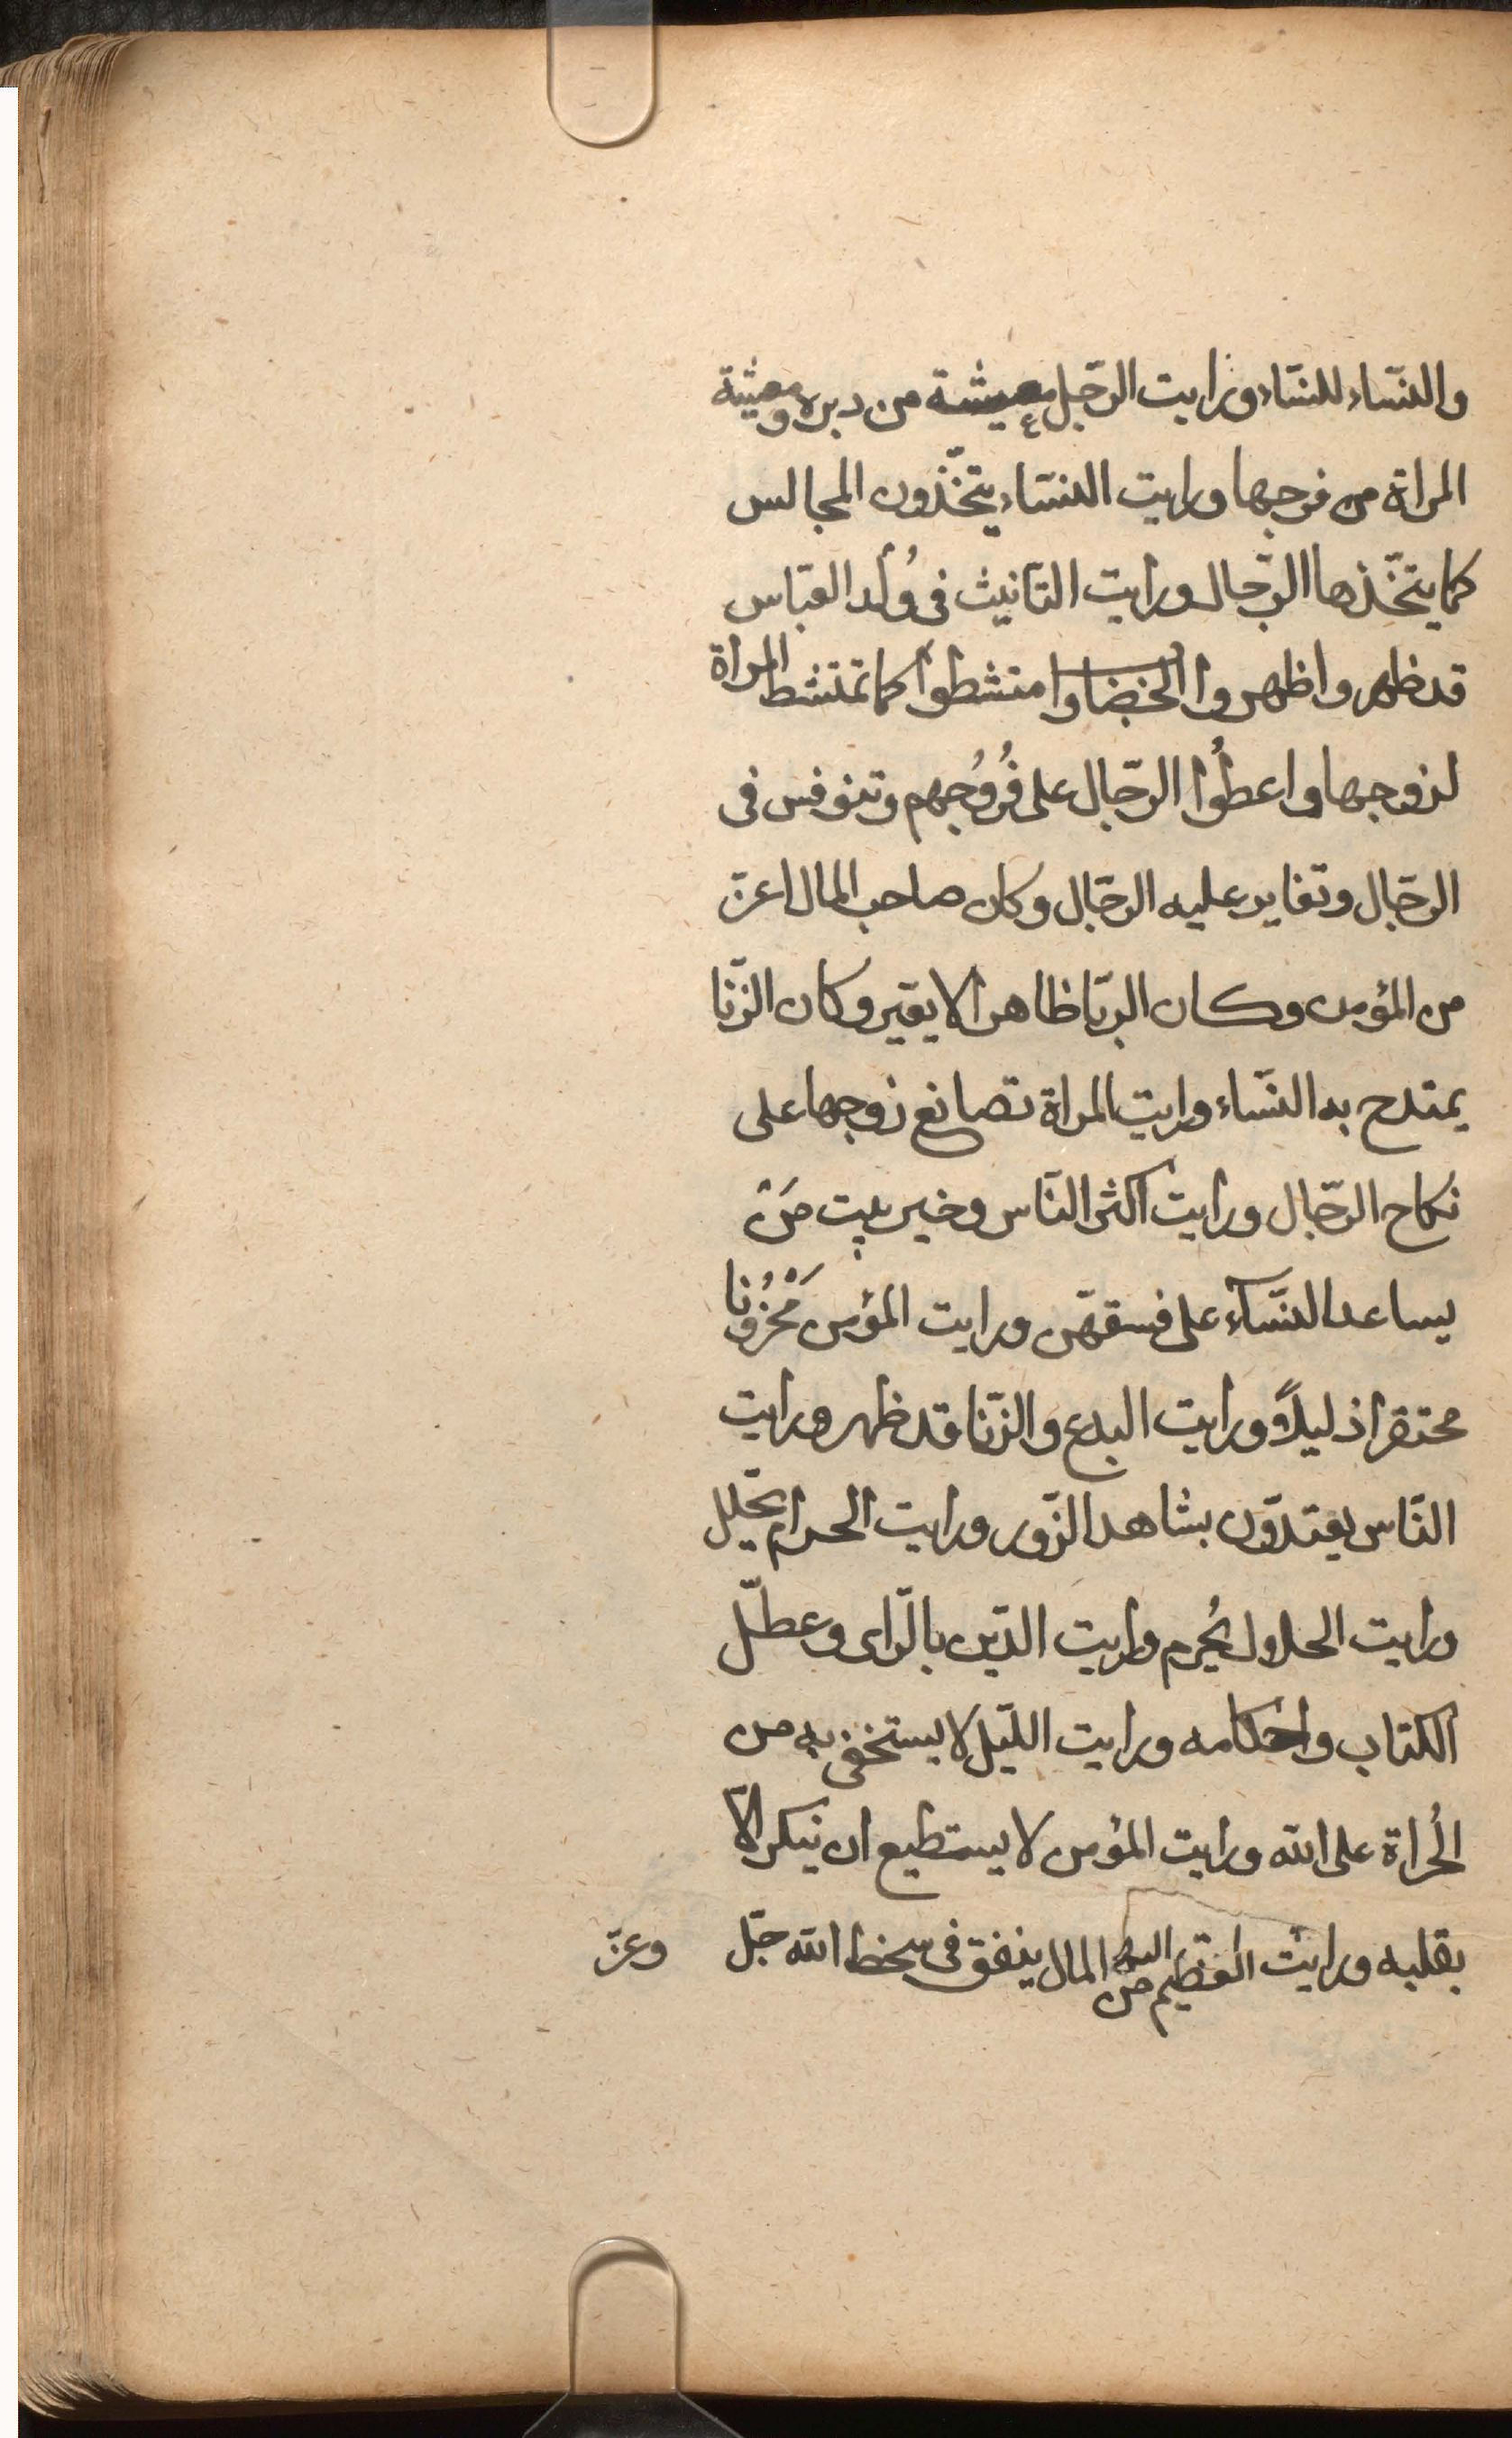 والنسّاء للنسّاء ورايت الرّجل معيشة من دبره ومعيشة
المراة من فرجها ورايت النسّاء يتخّذون المجالس
كما يتخّذها الرّجال ورايت التّانيث فى وُلد العبّاس
قد ظهر واظهروا الخضاب وامتشطوا كما تمتشط المراة
لزوجها واعطُوا الرّجال على فُرُوُجهم وتنوفس فى
الرّجال وتغاير عليه الرّجال وكان صاحب المال اعزّ
من المؤمن وكان الرّبا ظاهرا لا يغيّر وكان الزّنا
يمتدح به النّساء ورايت المراة تصانع زوجها على
نكاح الرّجال ورايت اكثر النّاس وخير بيت مَنْ
يساعد النسّآء على فسقهّن ورايت المؤمن مَحْزُوُنا
محتقرا ذليلاً ورايت البدع والزّنا قد ظهر ورايت
النّاس يعتدّون بشاهد الزّور ورايت الحرام يحّلل
ورايت الحلال يُحرم ورايت الدّين بالرّاى وعطّل
الكتاب واحكامه ورايت اللّيل لا يستخفى به من
الجُراة على الله ورايت المؤمن لا يستطيع ان ينكر الّا
بقلبه ورايت العظيم من المال ينفق فى سخط الله جّل
وعزّ